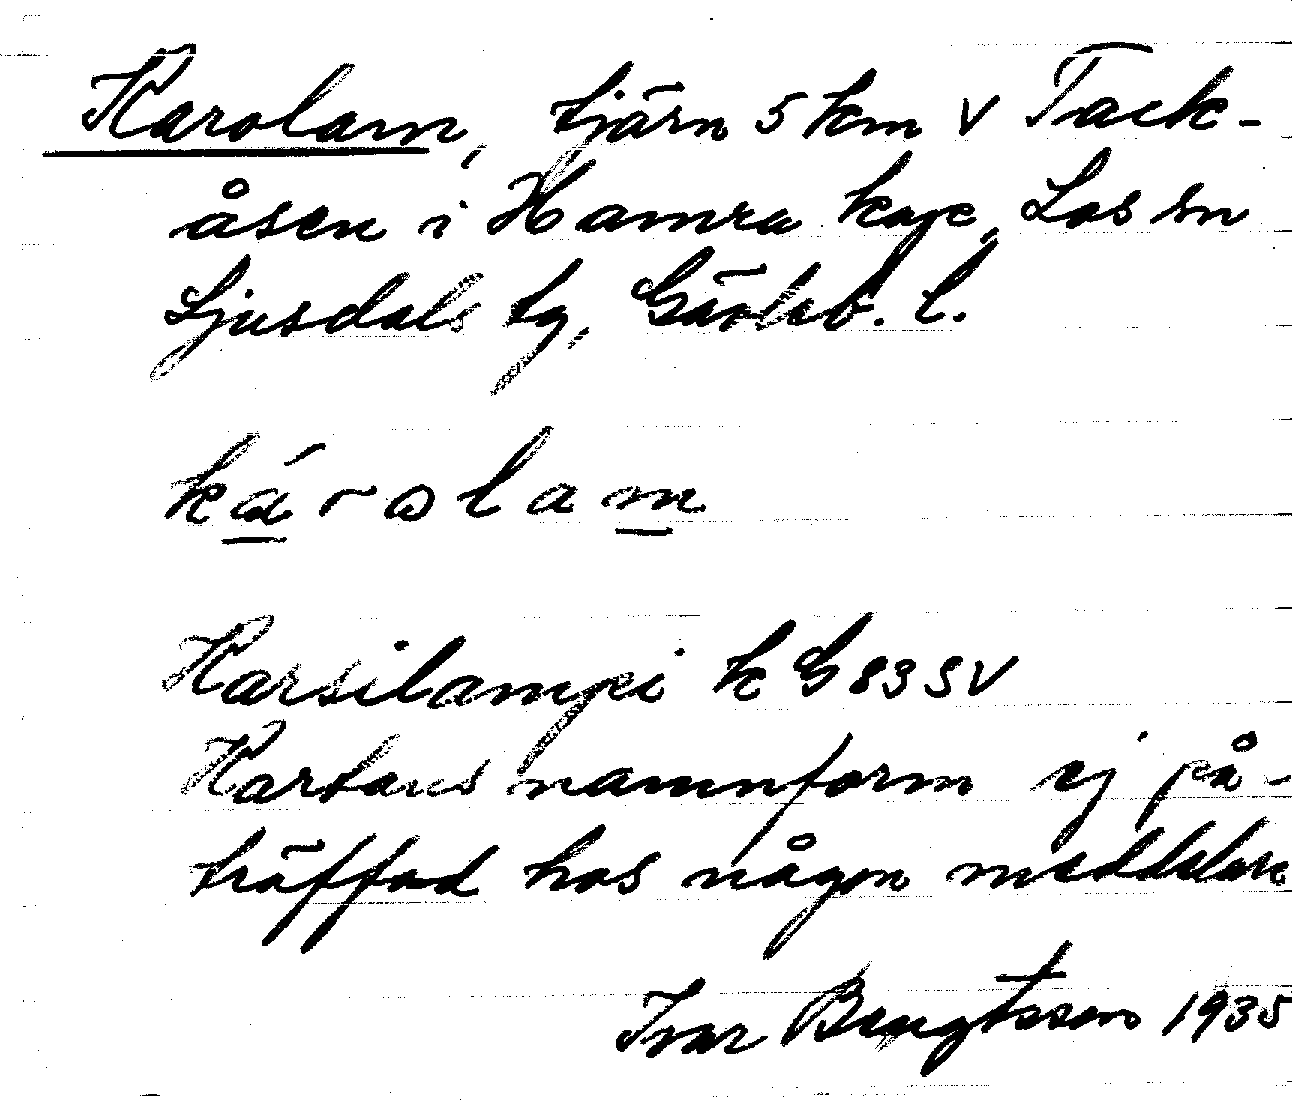 Karolam, tjärn 5 km V Tack-
åsen i Hamra kap, Los sn
Ljusdals tg, Gävleb. l.
károlam
Karsilampi k G 83 SV
Kartans namnform ej på-
träffad hos någon meddelare
Ivar Bengtsson 1935